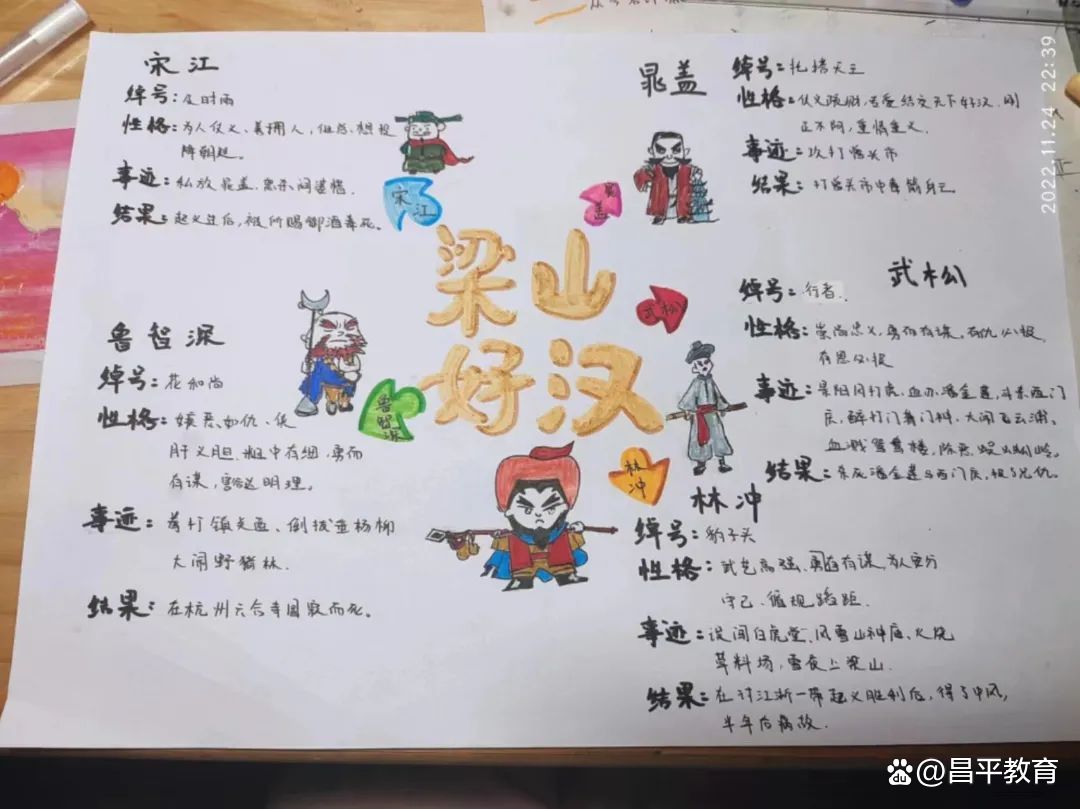 宋江
绰号：及时雨
性格：为人仗义、善用人，但总想投
降朝廷。
事迹：私放晁盖、怒杀阎婆惜。
结果：起义过后，被所赐御酒毒死。
晁盖
绰号：托塔天王
性格：仗义疏财，喜爱结交天下好汉，刚
正不阿，重情重义。
事迹：攻打曾头市
结果：打曾头市中毒箭身亡
宋江
晁盖
梁山
好汉
武松
鲁智深
林冲
武松
绰号：行者.
性格：崇尚忠义，勇而有谋，有仇必报，
有恩必报
事迹：景阳冈打虎、血办潘金莲、斗杀西门
庆，醉打门蒋门神，大闹飞云浦、
血溅鸳鸯楼，除恶蜈蚣岭。
结果：杀死潘金莲与西门庆，报了兄仇。
鲁智深
绰号：花和尚
性格：嫉恶如仇、侠
肝义胆、粗中有细，勇而
有谋，豁达明理。
事迹：拳打镇关西、倒拔垂杨柳
大闹野猪林.
结果：在杭州六合寺圆寂而死。
林冲
绰号：豹子头
性格：武艺高强、勇而有谋，为人安分
守己、循规蹈距.
事迹：误闯白虎堂、风雪山神庙、火烧
草料场，雪夜上梁山.
结果：在讨江浙一带起义胜利后，得了中风，
半年后病故.
2022.11.24 22:39
@昌平教育